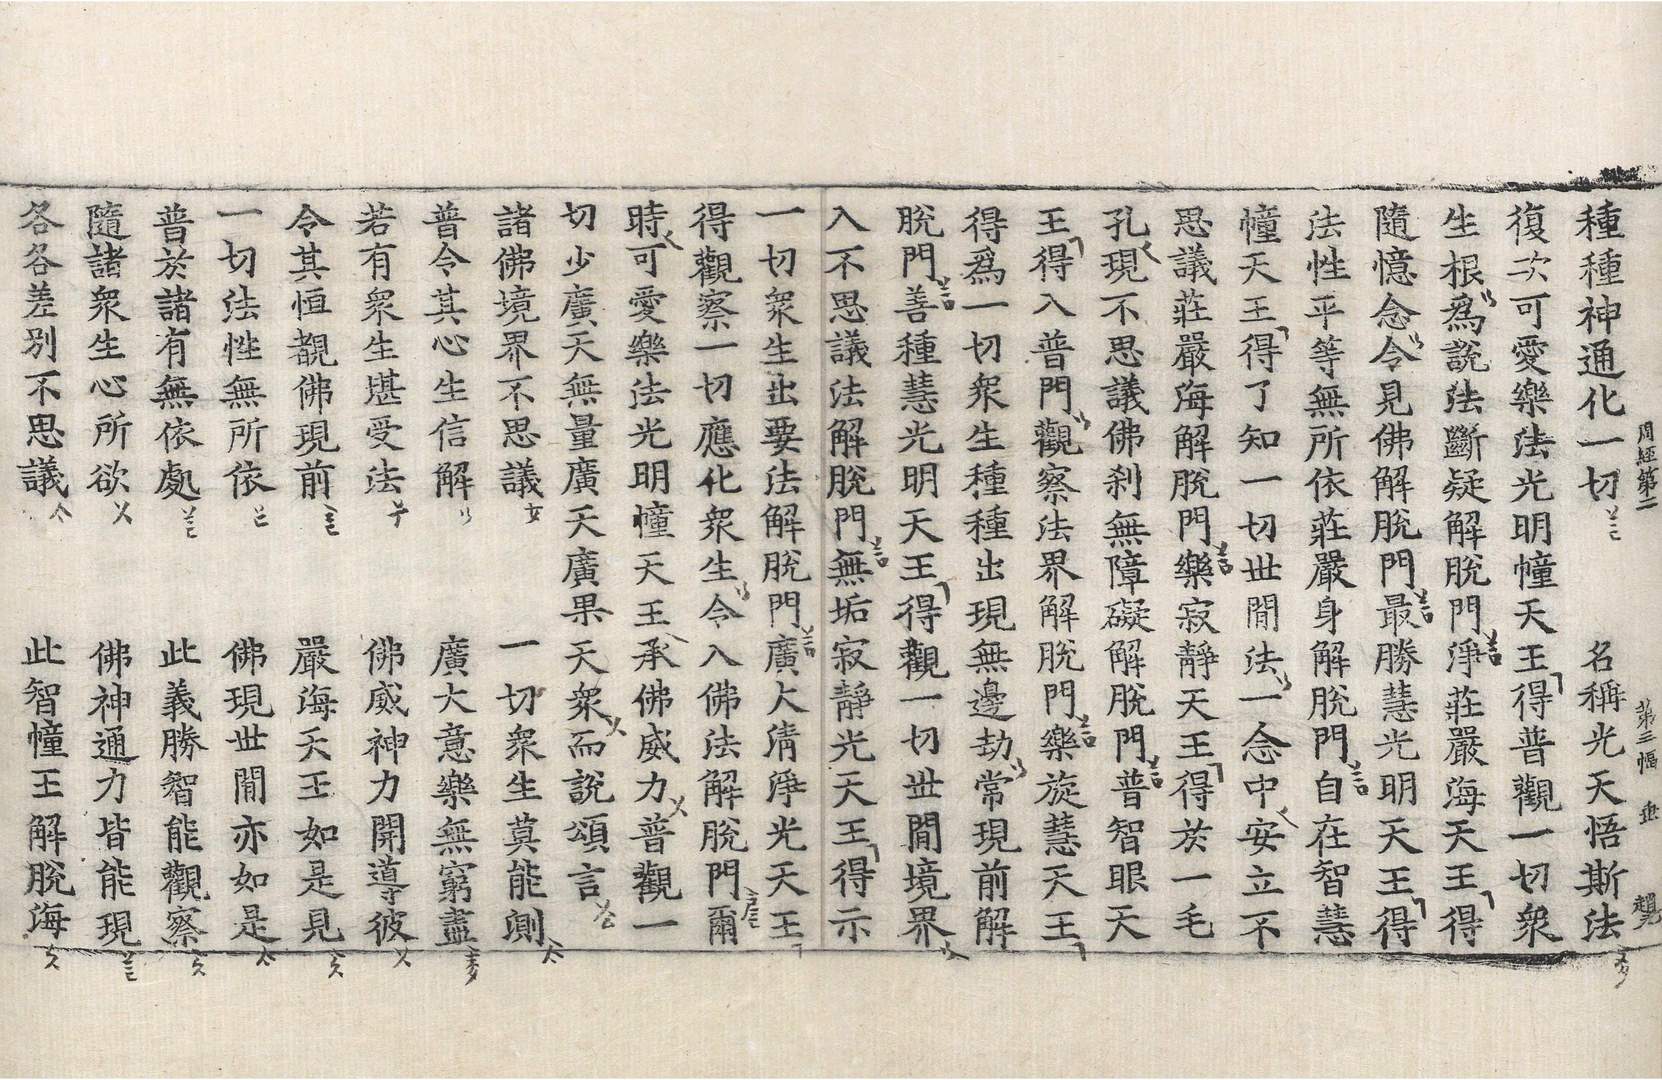 周經第二 第三幅
種種神通化一切 名稱光天悟斯法
復次可愛樂法光明幢天王得普觀一切衆
生根爲說法斷疑解脫門淨莊嚴海天王得
隨憶念令見佛解脫門最勝慧光明天王得
法性平等無所依莊嚴身解脫門自在智慧
幢天王得了知一切世間法一念中安立不
思議莊嚴海解脫門樂寂靜天王得於一毛
孔現不思議佛刹無障礙解脫門普智眼天
王得入普門觀察法界解脫門樂旋慧天王
得爲一切衆生種種出現無邊劫常現前解
脫門善種慧光明天王得觀一切世間境界
入不思議法解脫門無垢寂靜光天王得示
一切衆生出要法解脫門廣大清淨光天王
得觀察一切應化衆生令入佛法解脫門爾
時可愛樂法光明幢天王承佛威力普觀一
切少廣天無量廣天廣果天衆而說頌言
諸佛境界不思議 一切衆生莫能測
普令其心生信解 廣大意樂無窮盡
若有衆生堪受法 佛威神力開導彼
令其恒覩佛現前 嚴海天王如是見
一切法性無所依 佛現世間亦如是
普於諸有無依處 此義勝智能觀察
隨諸衆生心所欲 佛神通力皆能現
各各差別不思議 此智幢王解脫海